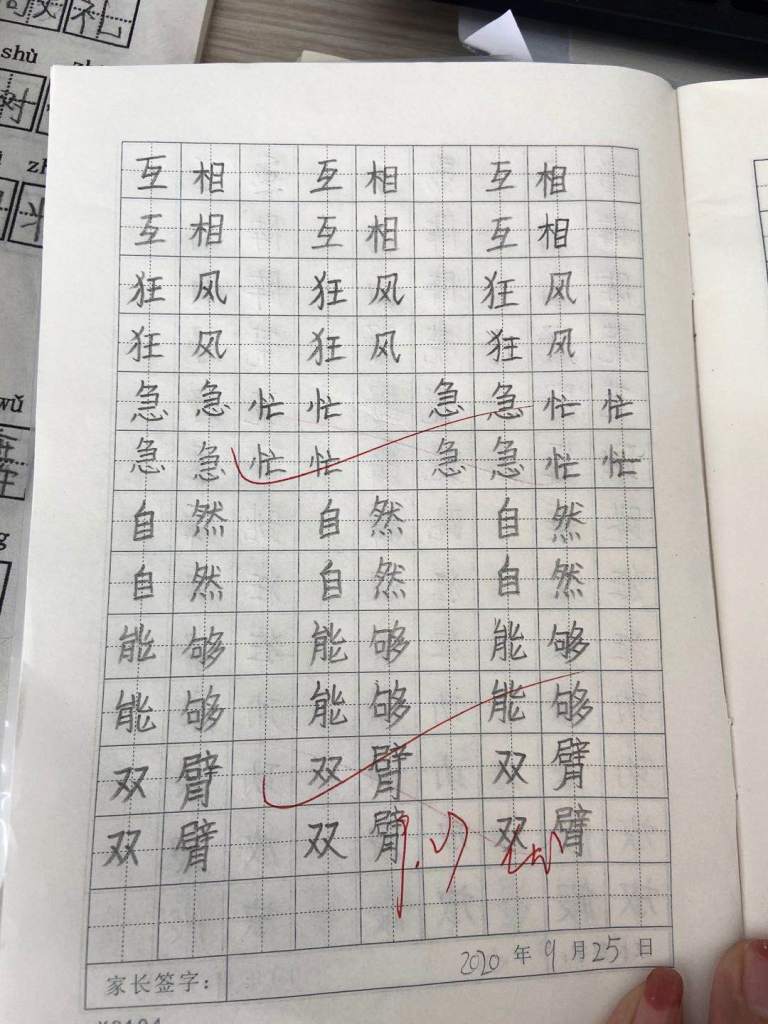 shù
互相 互相 互相
互相 互相 互相
狂风 狂风 狂风
狂风 狂风 狂风
急急忙忙 急急忙忙
急急忙忙 急急忙忙
自然 自然 自然
自然 自然 自然
能够 能够 能够
能够 能够 能够
双臂 双臂 双臂
双臂 双臂 双臂
2020年9月25日
家长签字：